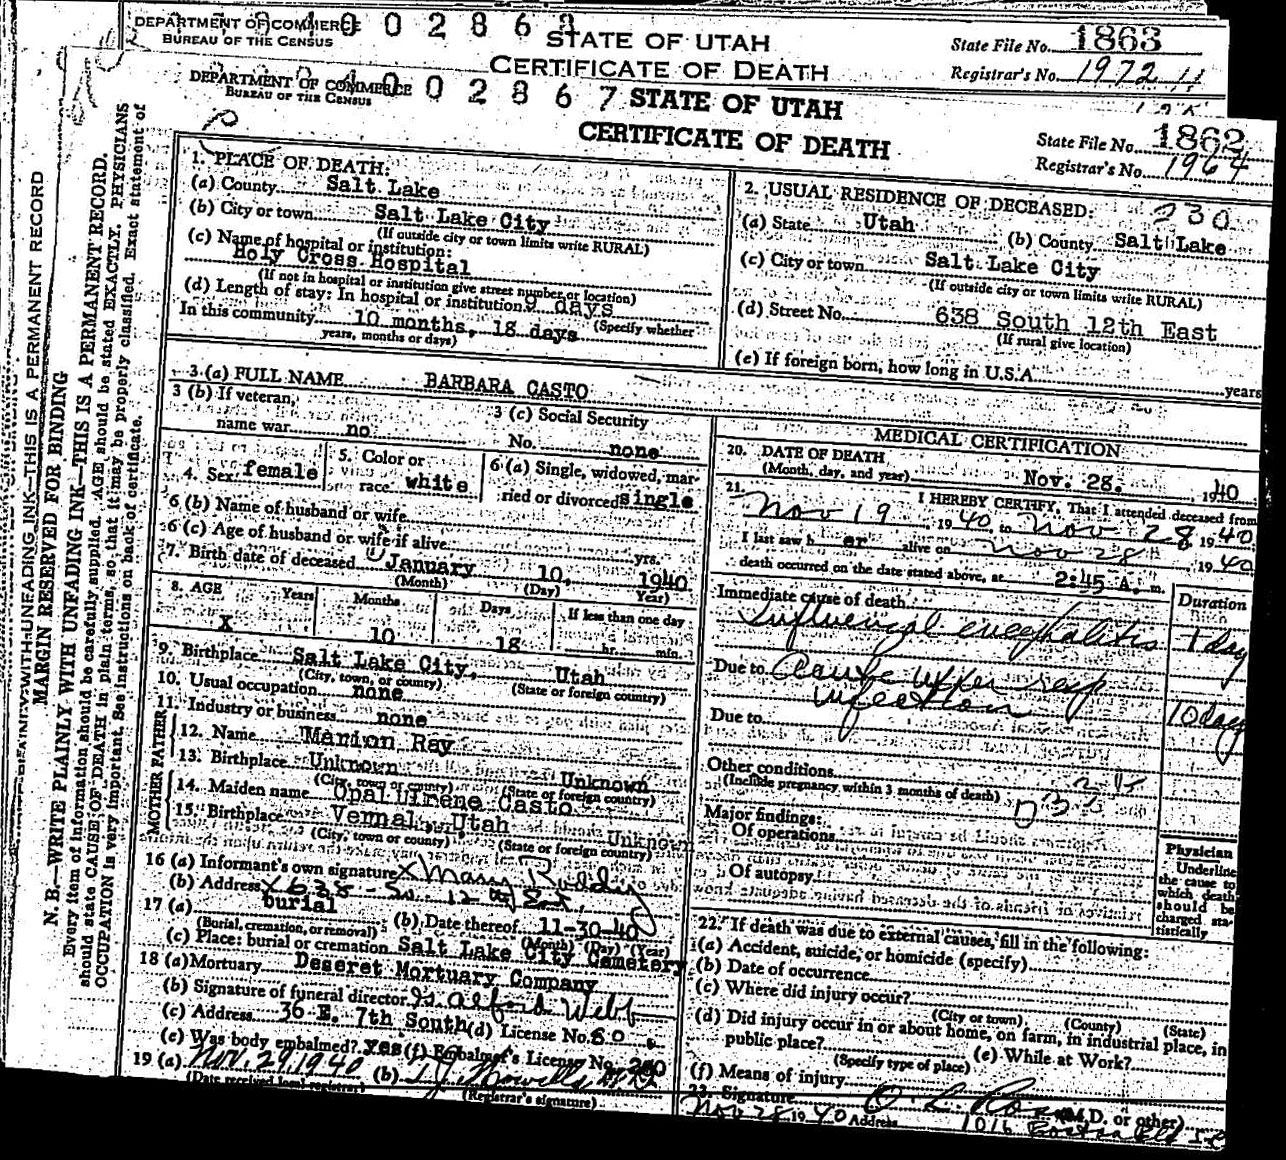 DEPARTMENT OF COMMERCE
BUREAU OF THE CENSUS
STATE OF UTAH
CERTIFICATE OF DEATH
State File No. 1863
Registrar's No. 1972
DEPARTMENT OF COMMERCE
BUREAU OF THE CENSUS
02867
STATE OF UTAH
CERTIFICATE OF DEATH
State File No. 1862
Registrar's No. 1964
MARGIN RESERVED FOR BINDING
N. B.—WRITE PLAINLY WITH UNFADING INK—THIS IS A PERMANENT RECORD.
Every item of information should be carefully supplied. AGE should be stated EXACTLY. PHYSICIANS
should state CAUSE OF DEATH in plain terms, so that it may be properly classified. Exact statement of
OCCUPATION is very important. See instructions on back of certificate.
1. PLACE OF DEATH:
(a) County Salt Lake
(b) City or town Salt Lake City
(If outside city or town limits write RURAL)
(c) Name of hospital or institution:
Holy Cross Hospital
(If not in hospital or institution give street number or location)
(d) Length of stay: In hospital or institution 9 days
In this community 10 months, 18 days (Specify whether
years, months or days)
2. USUAL RESIDENCE OF DECEASED: 230
(a) State Utah (b) County Salt Lake
(c) City or town Salt Lake City
(If outside city or town limits write RURAL)
(d) Street No. 638 South 12th East
(If rural give location)
(e) If foreign born, how long in U.S.A. years
3 (a) FULL NAME BARBARA CASTO
3 (b) If veteran,
name war no
3 (c) Social Security
No. none
4. Sex female
5. Color or
race white
6 (a) Single, widowed, mar-
ried or divorced single
6 (b) Name of husband or wife
6 (c) Age of husband or wife if alive yrs.
7. Birth date of deceased January 10, 1940
(Month) (Day) (Year)
8. AGE Years Months Days If less than one day
X 10 18 hr. min.
9. Birthplace Salt Lake City, Utah
(City, town, or county) (State or foreign country)
10. Usual occupation none
11. Industry or business none
FATHER
12. Name Marion Ray
13. Birthplace Unknown Unknown
(City, town or county) (State or foreign country)
MOTHER
14. Maiden name Opal Virene Casto
15. Birthplace Vernal, Utah Unknown
(City, town or county) (State or foreign country)
16 (a) Informant's own signature X Mary Rudding
(b) Address X 638 - So. 12th East
17 (a) burial (b) Date thereof 11-30-40
(Burial, cremation, or removal) (Month) (Day) (Year)
(c) Place: burial or cremation Salt Lake City Cemetery
18 (a) Mortuary Deseret Mortuary Company
(b) Signature of funeral director Alford Webb
(c) Address 36 E. 7th South (d) License No. 80
(e) Was body embalmed? yes (f) Embalmer's License No. 200
19 (a) Nov. 29, 1940 (b)
(Date received local registrar) (Registrar's signature)
MEDICAL CERTIFICATION
20. DATE OF DEATH
(Month, day, and year) Nov. 28. 1940
21. I HEREBY CERTIFY, That I attended deceased from
Nov 19, 1940 to Nov 28 1940
I last saw her alive on Nov 28 1940
death occurred on the date stated above, at 2:45 A. m.
Immediate cause of death Duration
Influenzal encephalitis 1 day
Due to Acute upper resp
infection 10 days
Due to
Other conditions
(Include pregnancy within 3 months of death)
Major findings:
Of operations
Of autopsy
Physician
Underline
the cause to
which death
should be
charged sta-
tistically
22. If death was due to external causes, fill in the following:
(a) Accident, suicide, or homicide (specify)
(b) Date of occurrence
(c) Where did injury occur?
(City or town) (County) (State)
(d) Did injury occur in or about home, on farm, in industrial place, in
public place? (e) While at Work?
(Specify type of place)
(f) Means of injury
23. Signature (M.D. or other)
Nov 28 1940 Address 1016